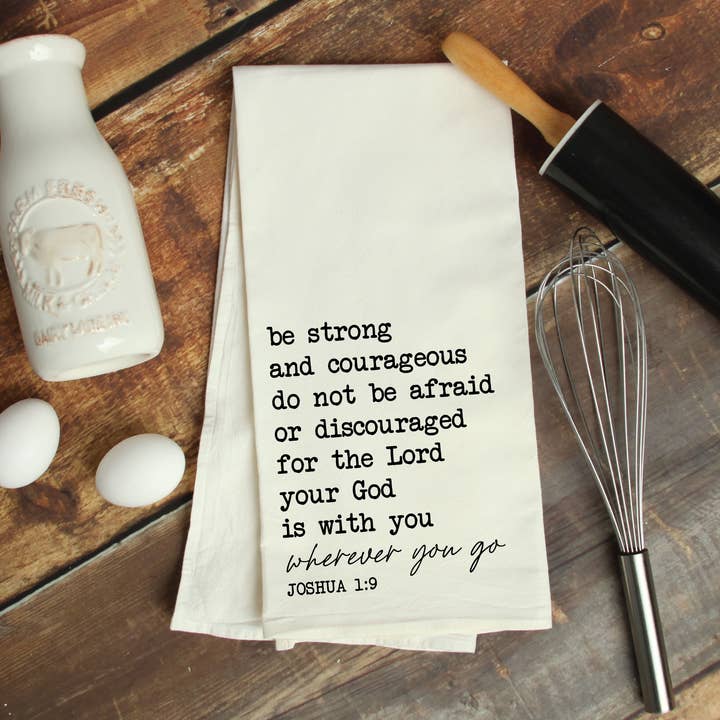 be strong
and courageous
do not be afraid
or discouraged
for the Lord
your God
is with you
wherever you go
JOSHUA 1:9